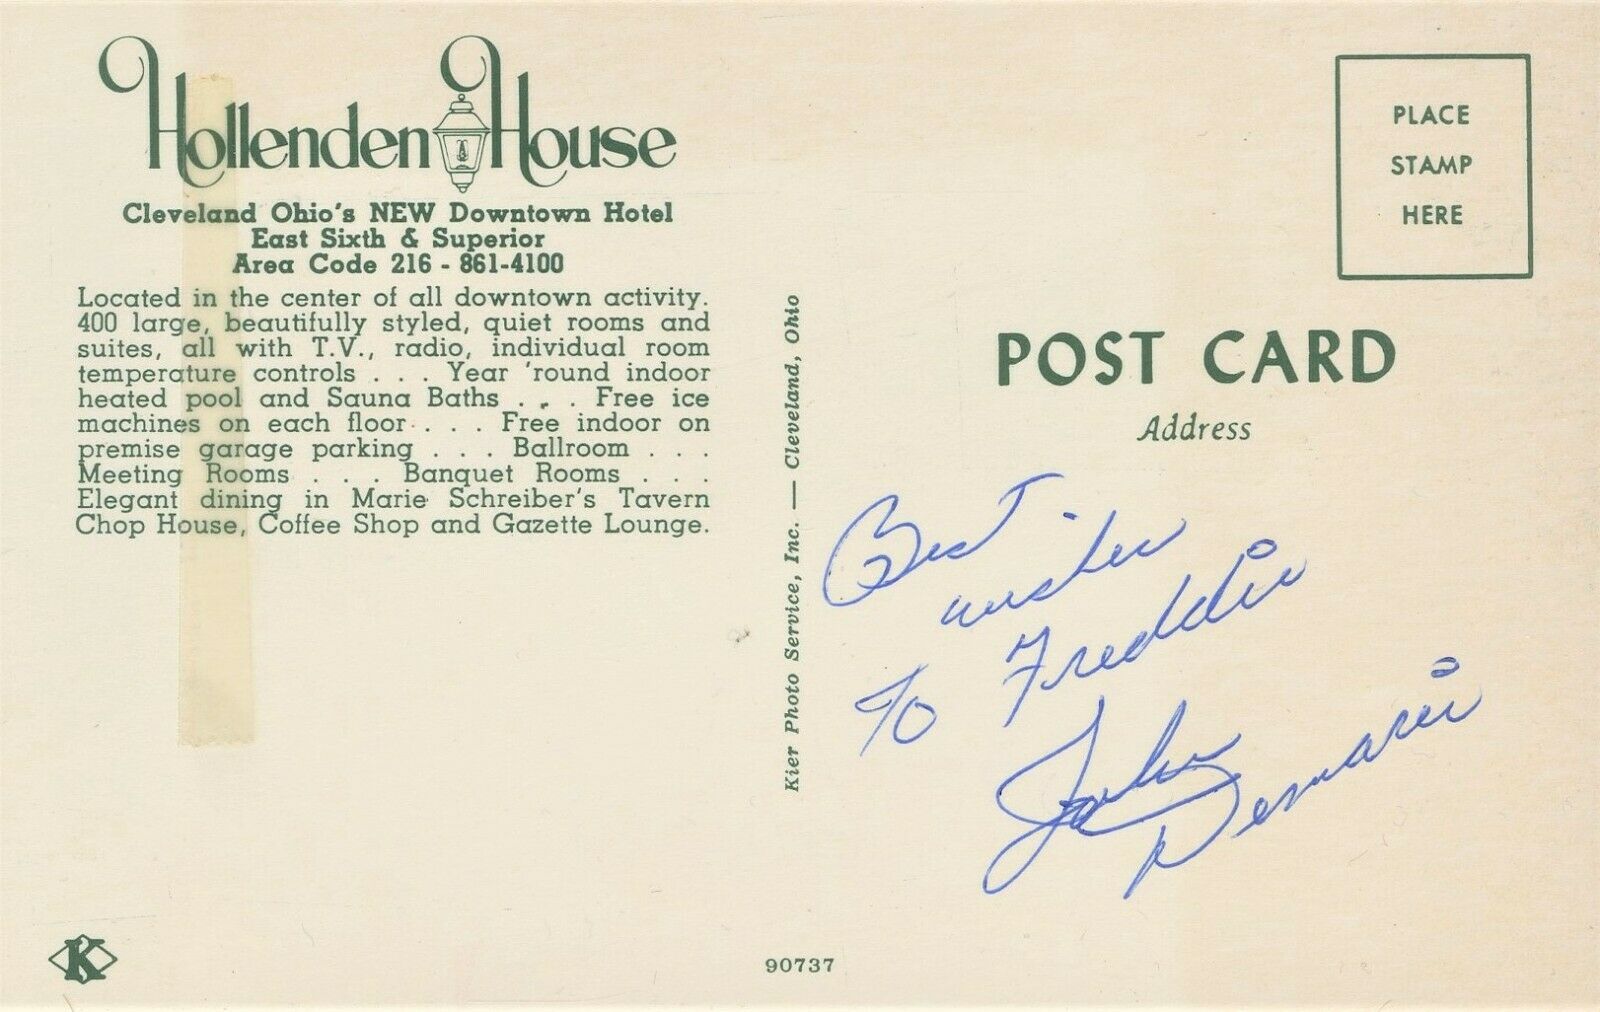 Hollenden House
Cleveland Ohio's NEW Downtown Hotel
East Sixth & Superior
Area Code 216 - 861-4100
Located in the center of all downtown activity.
400 large, beautifully styled, quiet rooms and
suites, all with T.V., radio, individual room
temperature controls . . . Year 'round indoor
heated pool and Sauna Baths . . . Free ice
machines on each floor . . . Free indoor on
premise garage parking . . . Ballroom . . .
Meeting Rooms . . . Banquet Rooms . . .
Elegant dining in Marie Schreiber's Tavern
Chop House, Coffee Shop and Gazette Lounge.
K
Kier Photo Service, Inc. — Cleveland, Ohio
90737
PLACE
STAMP
HERE
POST CARD
Address
Best
wishes
To Freddie
John
Demarie